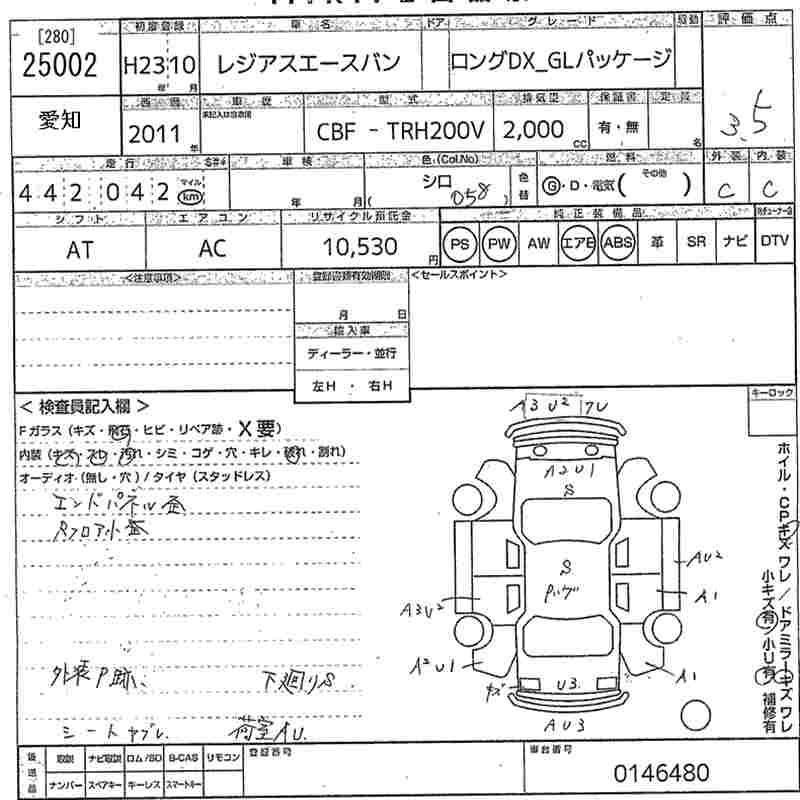 [280]
25002
初度登録 車名 ドア グレード 駆動 評価点
H23 10 年 月
レジアスエースバン
ロングDX_GLパッケージ
3.5
愛知
西暦 車歴 型式 排気量 保証書 定員
2011 年
未記入は自家用
CBF - TRH200V
2,000 CC
有・無
名
走行 車検 色(Col.No) 燃料 外装 内装
442042 マイル km
年 月
シロ 058
色替
G・D・電気( その他 )
C C
シフト エアコン リサイクル預託金 純正装備品
AT AC 10,530 円
PS PW AW エアB ABS 革 SR ナビ DTV
<注意事項> 登録書類有効期限 <セールスポイント>
月 日
輸入車
ディーラー・並行
左H ・ 右H
< 検査員記入欄 >
Fガラス (キズ・飛石・ヒビ・リペア跡・X要)
内装 (キズ・スレ・汚れ・シミ・コゲ・穴・キレ・破れ・割れ)
オーディオ (無し・穴) / タイヤ (スタッドレス)
エンドパネル歪
Rフロア小歪
外装P跡、 下廻りS
シートヤブレ、 荷室AU.
キーロック
A3 U2 7U
A2U1
S
S
Pバグ
AU2
A1
A3U2
A2U1
A1
キズ
U3.
AU3
ホイル・CPキズワレ/ドアミラーキズワレ
小キズ有/小U有 補修有
後送品
取説 ナビ取説 ロム/SD B-CAS リモコン
ナンバー スペアキー キーレス スマートキー
登録番号
車台番号
0146480